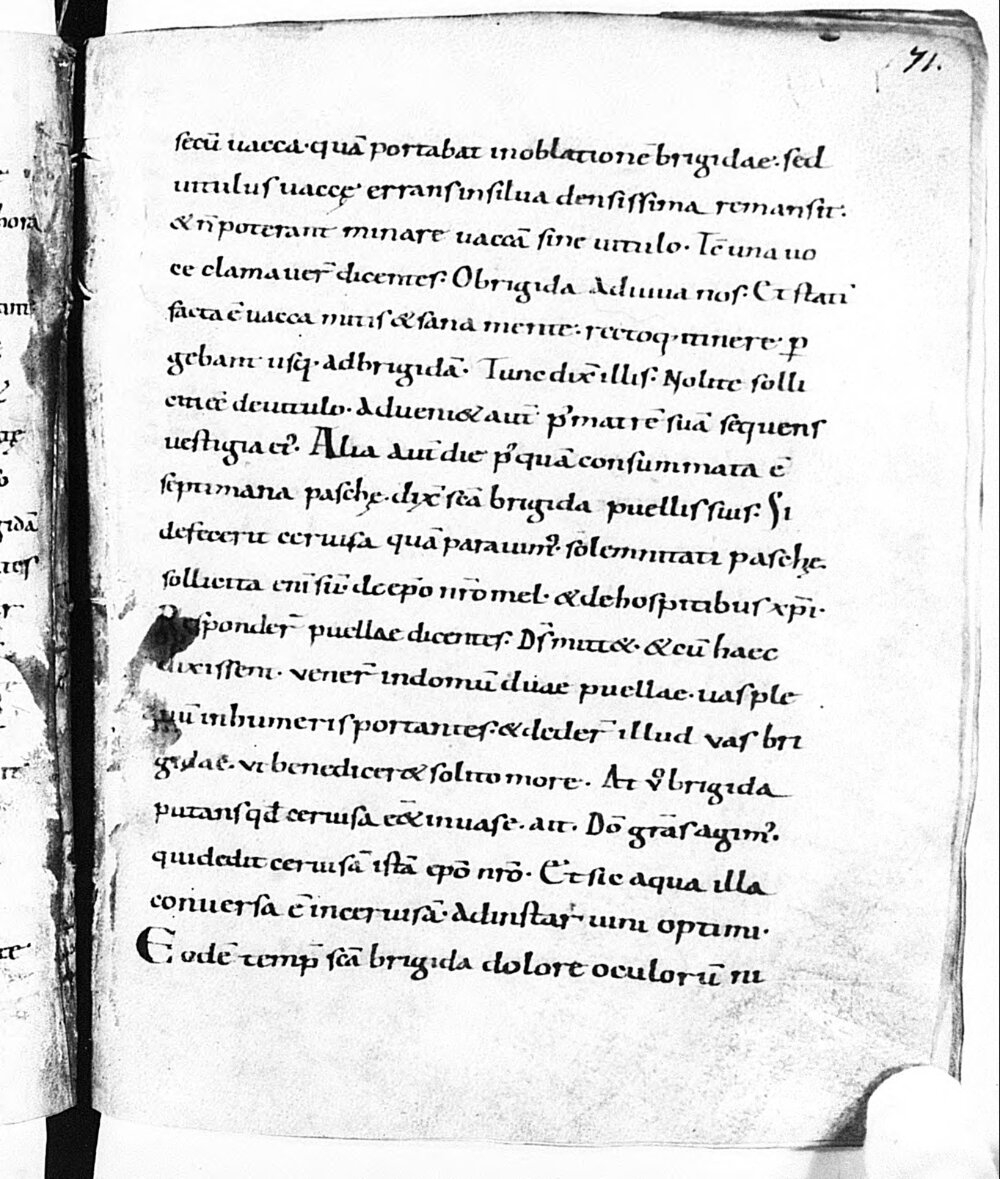 71.
secū uacca· quā portabat inoblationē brigidae· sed
uitulus uaccę erransinsilua densissima remansit·
&n̄poterant minare uaccā sine uitulo· Tc̄ una uo
ce clamauer̄ dicentes· Obrigida Adiuua nos· Et stati
facta ē uacca mitis &sana mente· rectoq· itinere· p̲
gebant usq· adbrigidā· Tunc dix̄ illis· Nolite solli
deuitulo· Adueni& aut̄ matrē suā sequens
uestigia ei᾿· Alia aut̄ die p᾿quā consummata ē
septimana paschę· dix̄ sc̄a brigida puellis suis· Si
defecerit ceruisa quā parauim᾿· solemnitati paschę·
sollicita eni sū· de ep̄o nr̄o mel· &dehospitibus xp̄i·
Responder̄ puellae dicentes· Dn̄s mitt&· &cū haec
dixissent· uener̄ indomū duae puellae· uas ple
nū inhumeris portantes· &deder̄ illud uas bri
gidae· ut benedicer& solito more· At v᾿ brigida
putans qd̄ ceruisa inuase· ait· Dō grās agim᾿·
quidedit ceruisā istā ep̄o nr̄o· Et sic aqua illa
conuersa ē inceruisā· Adinstar uini optimi·
Eodē temp̄ sc̄a brigida dolore oculorū ni
hora
gidā